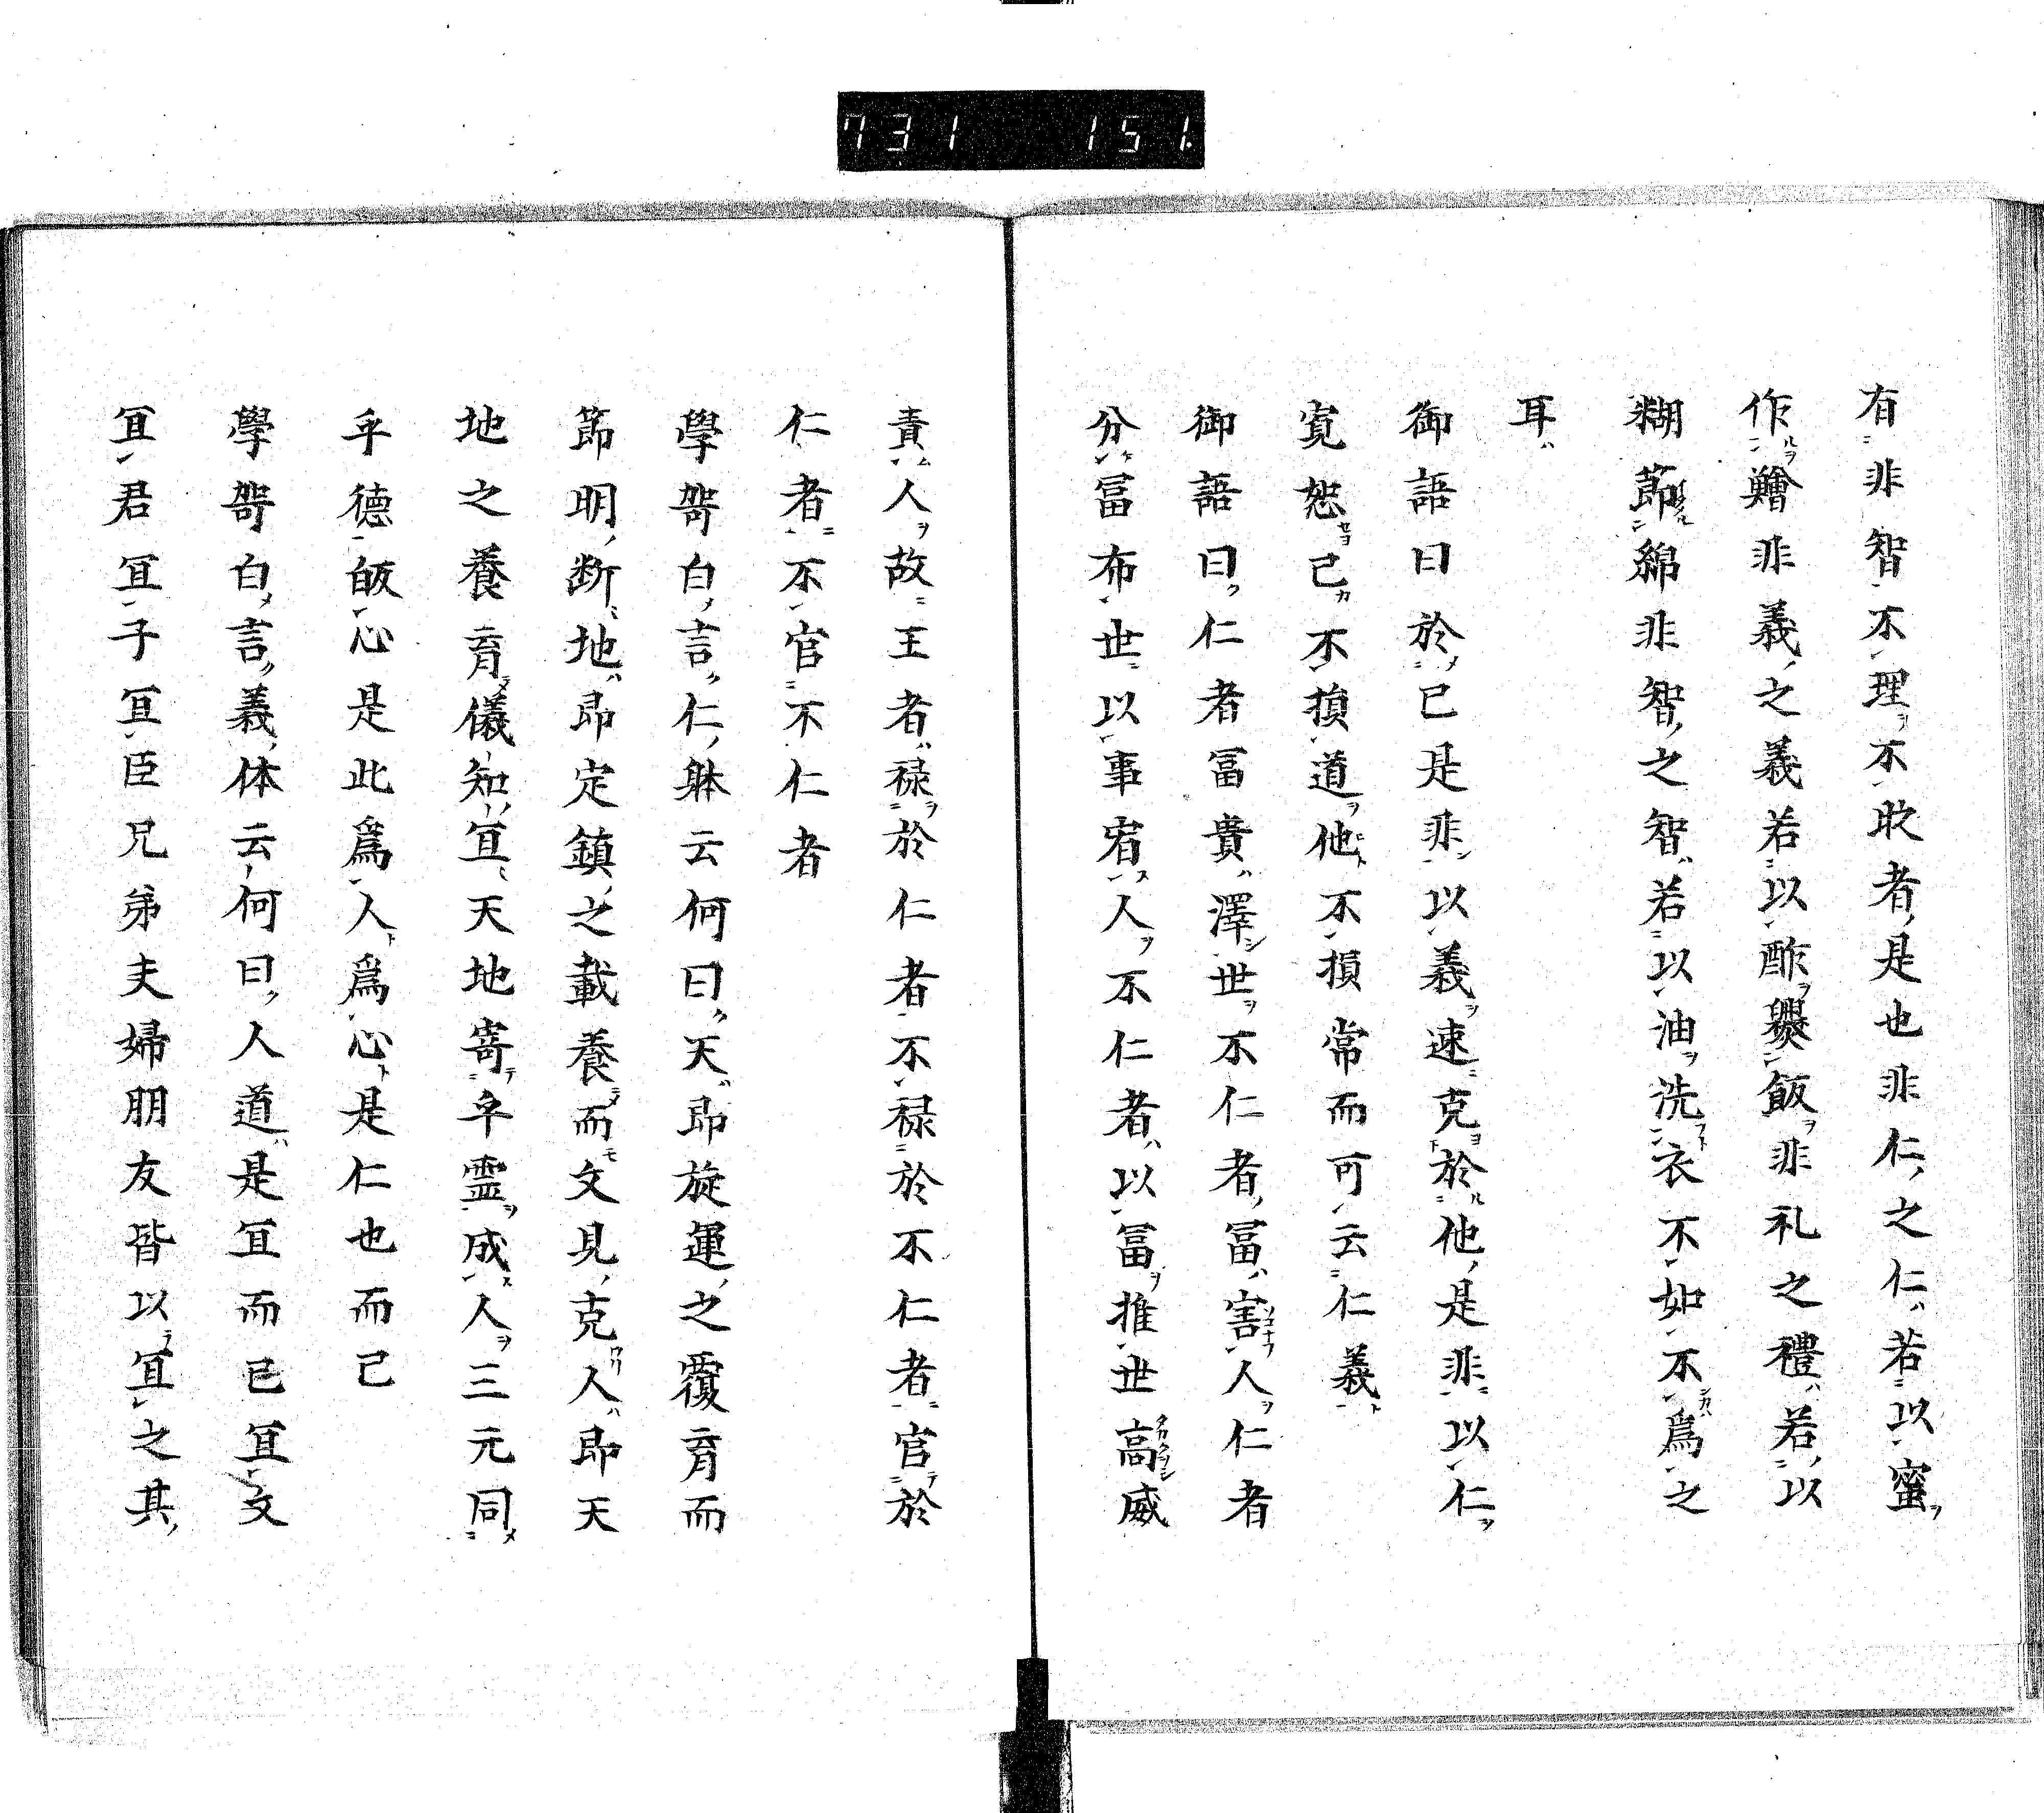 731 151.
有非智不理不收者是也非仁之仁若以蜜
作鱠非義之義若以酢爨飯非礼之禮若以
糊節綿非智之智若以油洗衣不如不爲之
耳
御語曰於己是非以義速克於他是非以仁
寛恕己不損道他不損常而可云仁義
御語曰仁者冨貴澤世不仁者冨害人仁者
分冨布世以事宥人不仁者以冨推世高威
責人故王者禄於仁者不禄於不仁者官於
仁者不官不仁者
學哿白言仁躰云何曰天即旋運之覆育而
節明断地即定鎮之載養而文見克人即天
地之養育儀知冝天地寄乎霊成人三元同
乎德皈心是此爲人爲心是仁也而己
學哿白言義体云何曰人道是冝而已冝文
冝君冝子冝臣兄弟夫婦朋友皆以冝之其